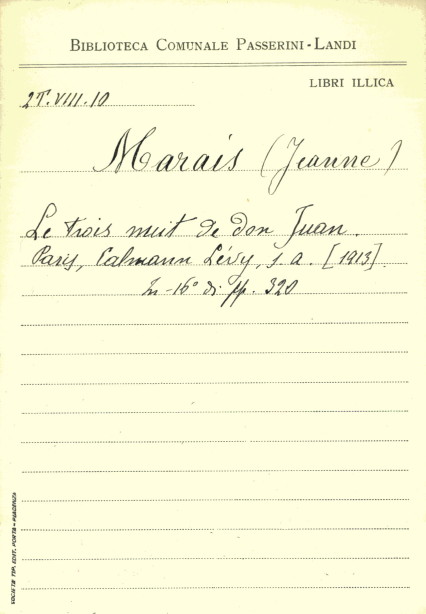 BIBLIOTECA COMUNALE PASSERINI-LANDI
LIBRI ILLICA
2T.VIII.10
Marais (Jeanne)
Le trois nuit de don Juan.
Paris, Calmann Lévy, s. a. [1913].
In-16° di pp. 320
SOCIETÀ TIP. EDIT. PORTA - PIACENZA